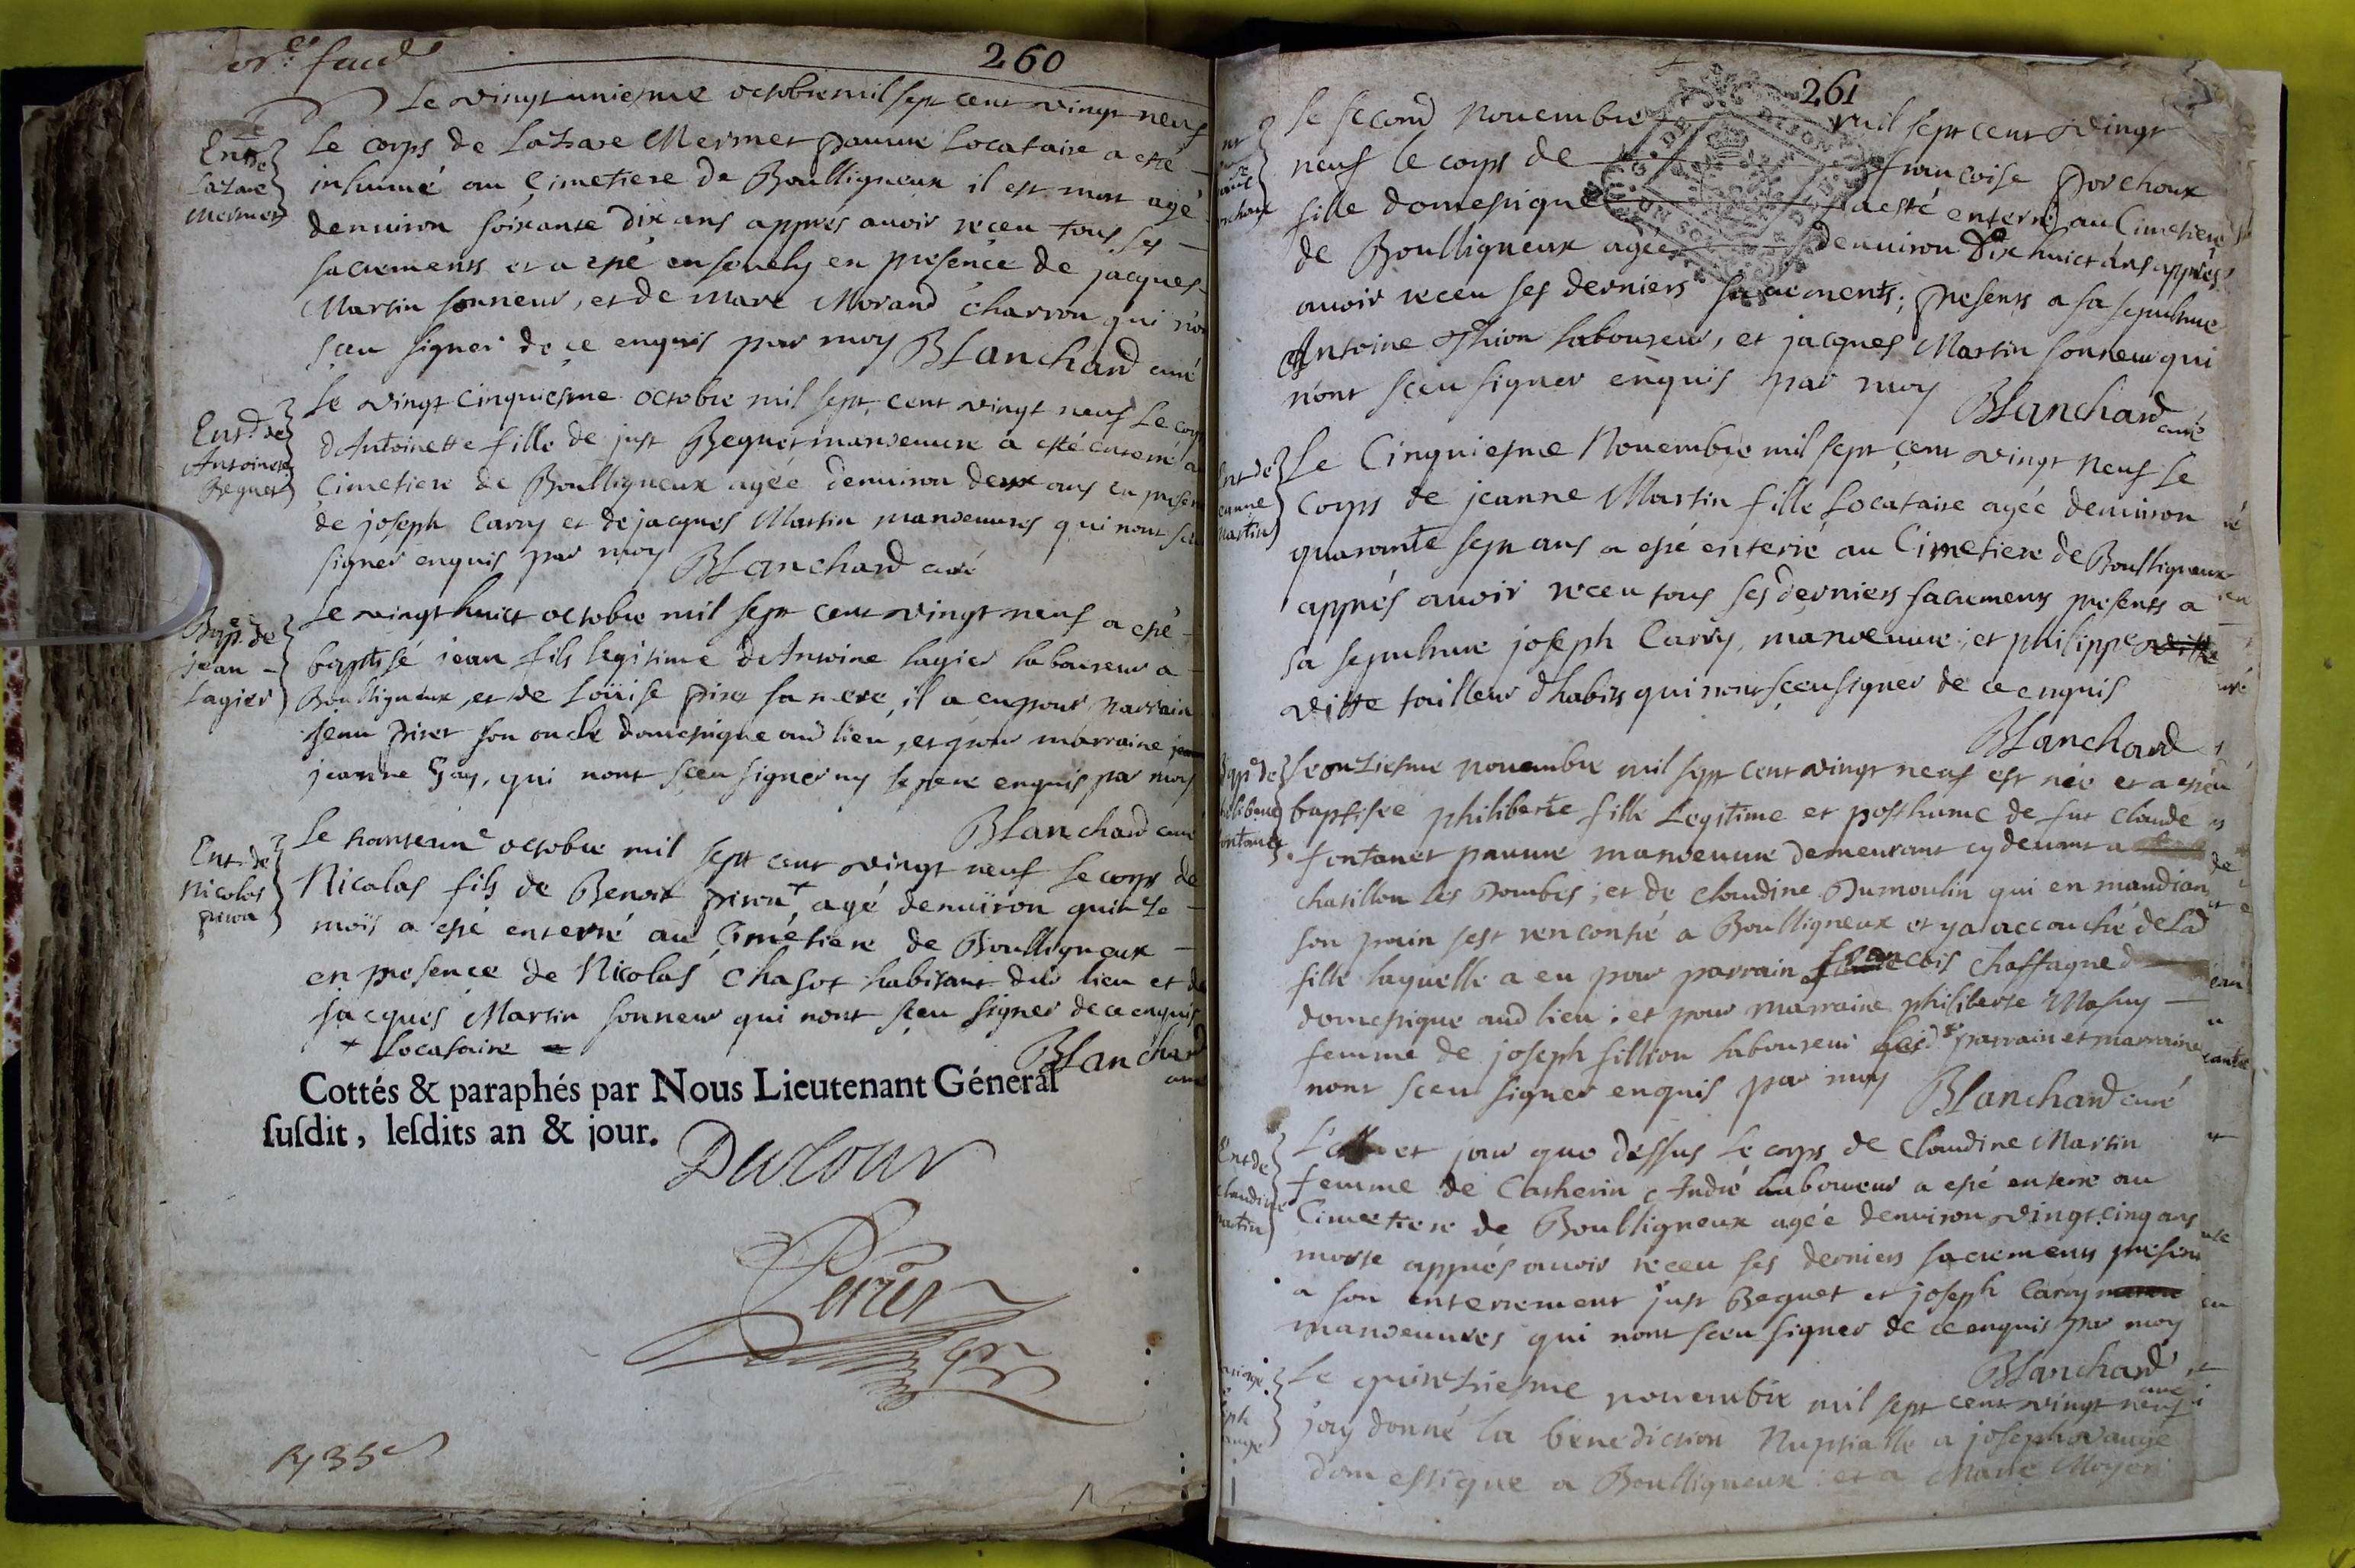 260
Le vingt uniesme octobre mil sept cent vingt neuf
Le corps de Lazare Mermet pauvre Locataire a esté
inhumé au Cimetiere de Boulligneux il est mort agé
denuiron soixante dix ans apprés auoir receu tous ses
sacrements et a esté enseuely en presence de jacques
Martin sonneur, et de Marc Morand charron qui n'ont
sceu signer de ce enquis par moy Blanchard curé
Ent. de
Lazare
Mermet
Le vingt cinquiesme octobre mil sept cent vingt neuf Le corps
d'Antoinette fille de just Beguet manoeuure a esté enterré au
Cimetiere de Boulligneux agée denuiron deux ans en presence
de joseph Carry et de jacques Martin manoeuures qui nont sceu
signer enquis par moy Blanchard curé
Ent.t de
Antoinette
Beguet
Le vingt huict octobre mil sept cent vingt neuf a esté
baptisé jean fils legitime de Antoine Lagier laboureur a
Boulligneux, et de Loüise piret sa mere, il a eu pour parrain
jean piret son oncle domestique aud lieu, et pour marraine
jeanne Gay, qui nont sceu signer ny le pere enquis par moy
Blanchard curé
Bap. de
jean
Lagier
Le trantieme octobre mil sept cent vingt neuf le corps de
Nicolas fils de Benoit + agé denuiron quinze
mois a esté enterré au Cimetiere de Boulligneux
en presence de Nicolas Chasot habitant dud lieu et de
jacques Martin sonneur qui nont sceu signer de ce enquis
+ Locataire
Blanchard
curé
Ent. de
Nicolas
Cottés & paraphés par Nous Lieutenant Géneral
susdit, lesdits an & jour.
Ducour
261
Le second Nouembre mil sept cent vingt
neuf le corps de francoise porchoux
fille domestique a esté enterré au Cimetiere
de Boulligneux agée denuiron dix huict ans apprés
auoir receu ses derniers sacrements; presents a sa sepulture
Antoine laboureur, et jacques Martin sonneur qui
n'ont sceu signer enquis par moy
Blanchard
curé
Le Cinquiesme Nouembre mil sept cent vingt neuf le
corps de jeanne Martin fille Locataire agée denuiron
quarante sept ans a esté enterré au Cimetiere de Boulligneux
apprés auoir receu tous ses derniers sacrements presents a
sa sepulture joseph Carry, manoeuure; et philippe
vitte tailleur d'habits qui nont sceu signer de ce enquis
Blanchard
Ent de
jeanne
Martin
Le onziesme nouembre mil sept cent vingt neuf est née et a esté
baptisée philiberte fille Legitime et posthume de fut Claude
fontanet pauure manoeuure demeurant cy deuant a
chatillon les Dombes; et de Claudine Dumoulin qui en mandiant
son pain sest rencontré a Boulligneux et y a accouché de lad
fille laquelle a eu pour parrain francois Chaffagne
domestique aud lieu; et pour marraine philiberte Mathy
femme de joseph fillion laboureur parrain et marraine
nont sceu signer enquis par moy Blanchard curé
L'an et jour que dessus le corps de Claudine Martin
femme de Catherin André laboureur a esté enterré au
Cimetiere de Boulligneux agée denuiron vingt cinq ans
morte apprés auoir receu ses derniers sacrements presents
a son enterrement just Beguet et joseph Carry
manoeuures qui nont sceu signer de ce enquis par moy
Blanchard
curé
Ent de
Claudine
Martin
Le quinziesme nouembre mil sept cent vingt neuf
j'ay donné la benediction Nuptialle a joseph vauge
domestique a Boulligneux et a Marie